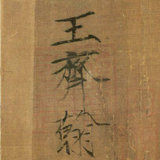 王齊翰